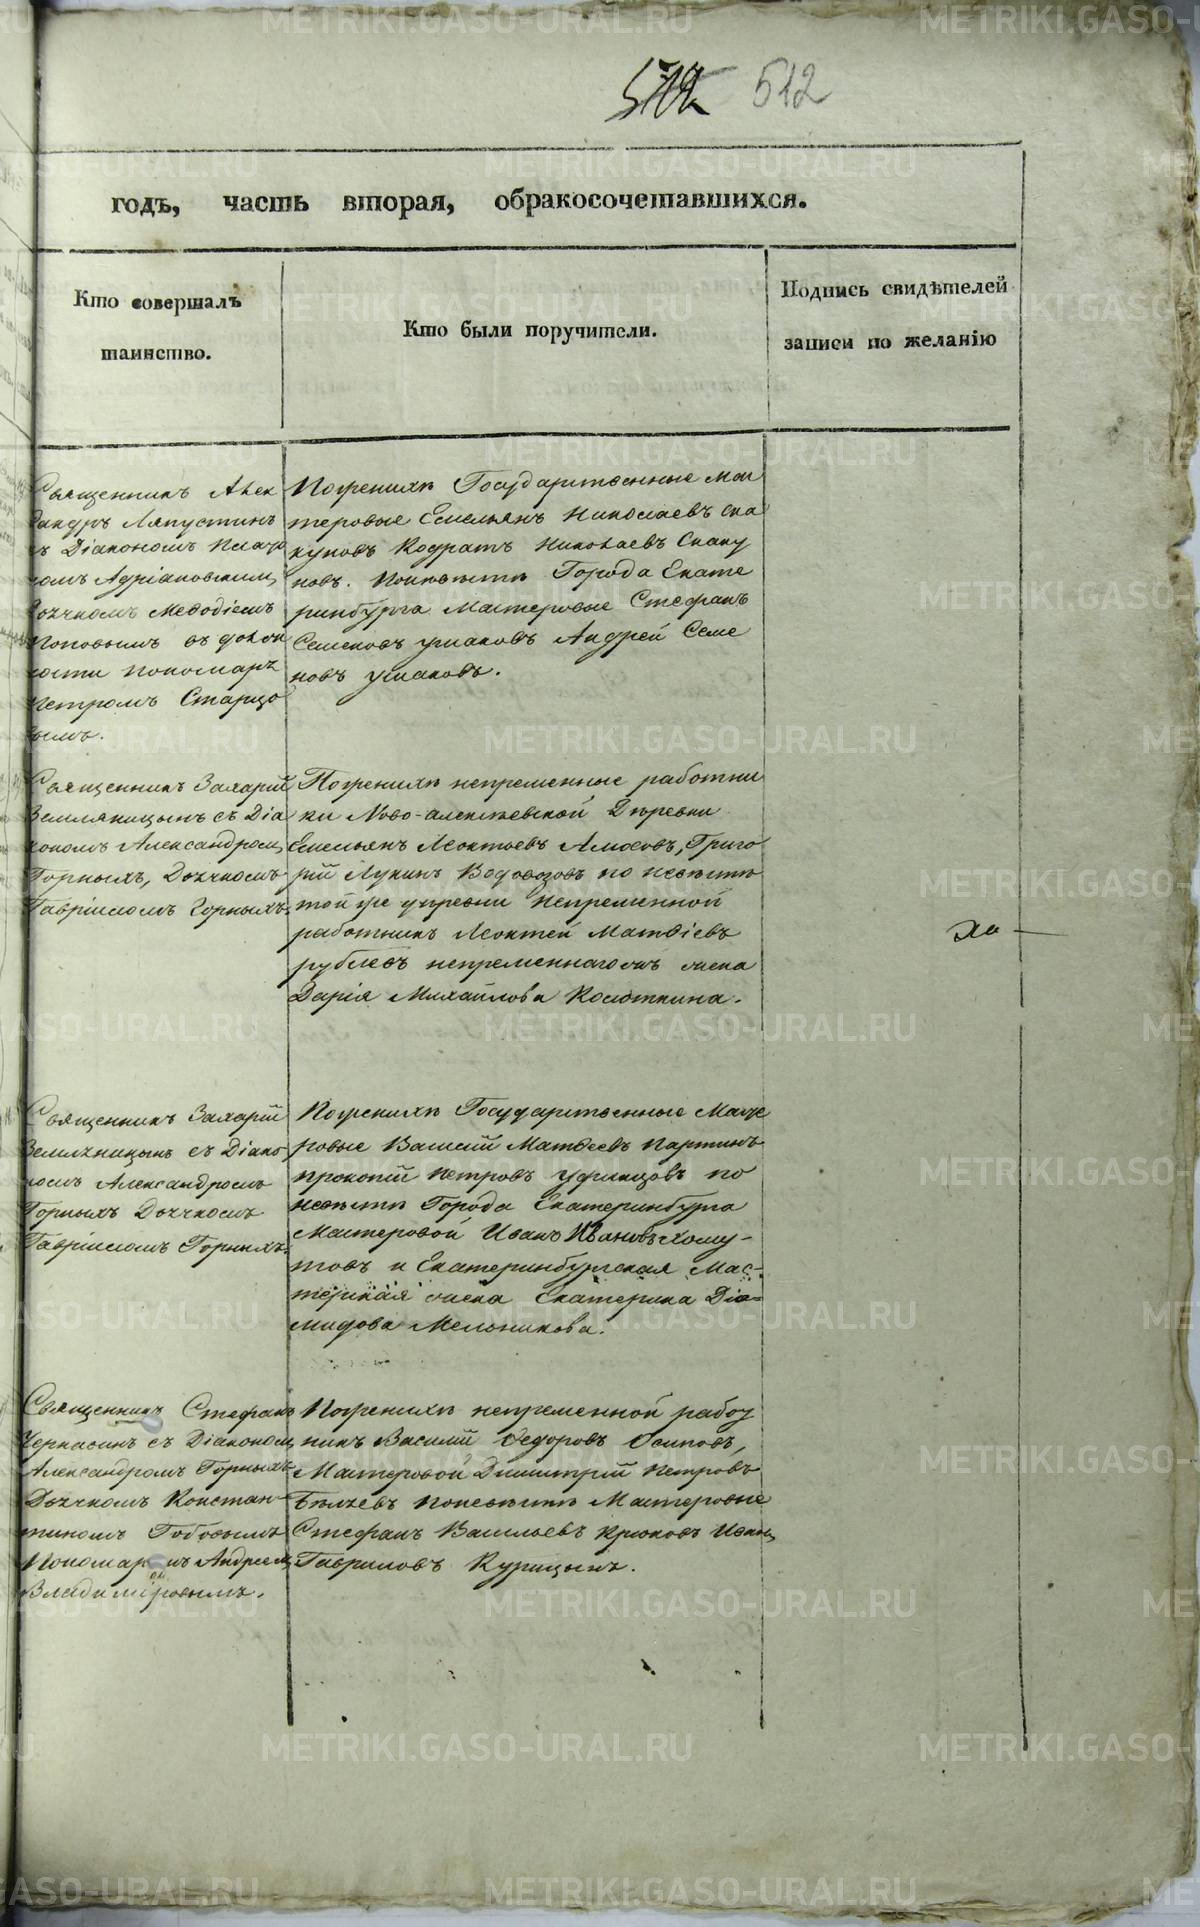 512
годъ, часть вторая, обракосочетавшихся.
Кто совершалъ
таинство.
Кто были поручители.
Подпись свидѣтелей
записи по желанію
Священникъ Алек
сандръ Ляпустинъ
съ Діакономъ
Адріановскимъ
Дьячкомъ Меѳодіемъ
Поповымъ въ должн
ности пономаря
Петромъ Старцо
вымъ.
По женихѣ Государственные Мас
теровые Емельянъ Николаевъ Ска
куновъ Кодратъ Николаевъ Скаку
новъ. По невѣстѣ Города Екате
ринбурга Мастеровые Стефанъ
Семеновъ Ушаковъ Андрей Семе
новъ Ушаковъ.
Священникъ Захарій
Земляницынъ съ Діа
кономъ Александромъ
Горныхъ, Дьячкомъ
Гавріиломъ Горныхъ.
По женихѣ непременные работни
ки Ново-алексѣевской Деревни
Емельянъ Леонтьевъ Амосовъ, Григо
рій Лукинъ Водовозовъ по невѣстѣ
той же деревни Непременной
работникъ Леонтей Матвіевъ
рублевъ непременнаго жена
Дарія Михайлова Колоткина.
Священникъ Захарій
Земляницынъ съ Діако
номъ Александромъ
Горныхъ Дьячкомъ
Гавріиломъ Горныхъ.
По женихѣ Государственные Масте
ровые Василій Матвеевъ Партинъ
прокопій Петровъ Уфинцовъ по
невѣстѣ Города Екатеринбурга
Мастеровой Иванъ Ивановъ Хому-
товъ и Екатеринбургская Мас-
терская жена Екатерина Діо=
мидова Мельникова.
Священникъ Стефанъ
Черкасинъ съ Діакономъ
Александромъ Горныхъ
Дьячкомъ Констан-
тиномъ
Пономаремъ Андреемъ
Владиміровымъ.
По женихѣ непременной работ
никъ Василій Ѳедоровъ Осиповъ,
Мастеровой Димитрій Петровъ
Бѣляевъ По невѣстѣ Мастеровые
Стефанъ Васильевъ Крюковъ Иванъ
Гавриловъ Курицынъ.
METRIKI.GASO-URAL.RU